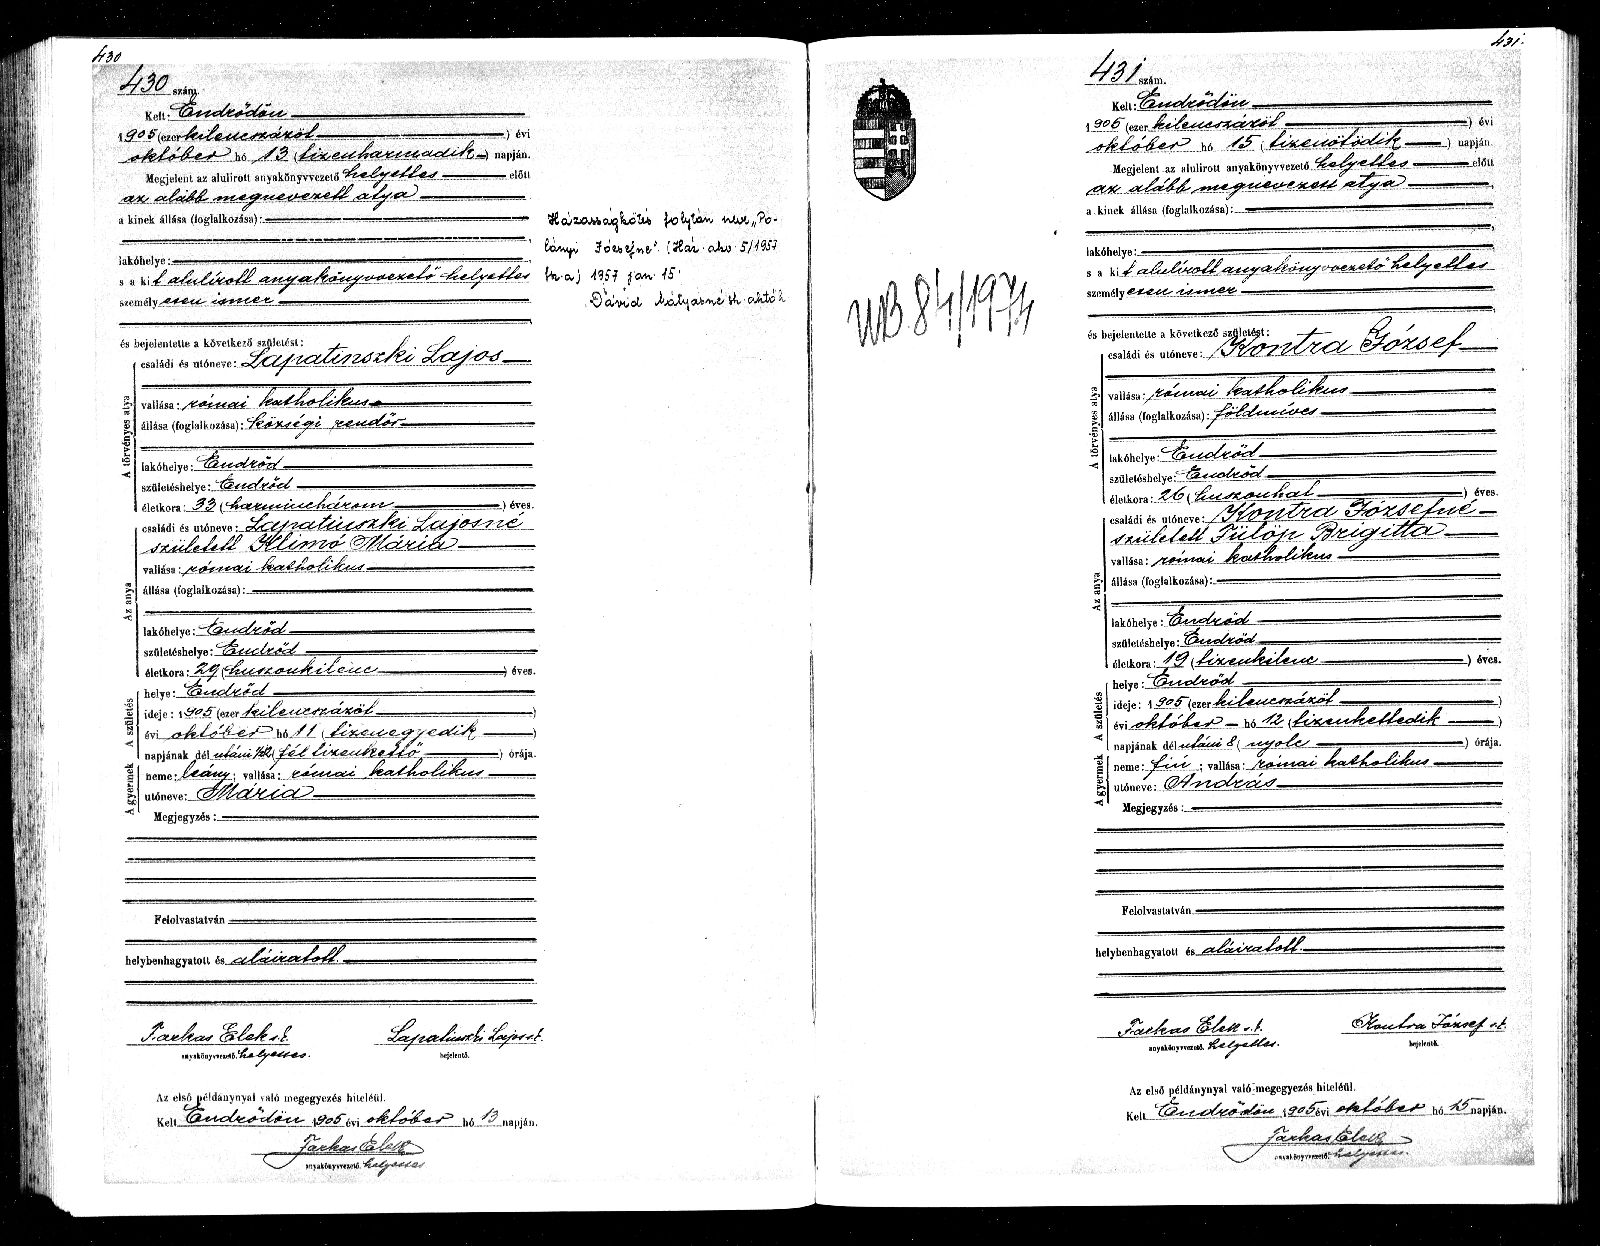 430
430 szám.
Kelt: Endrődön
1905 (ezer kilencszázöt) évi
október hó 13 (tizenharmadik) napján.
Megjelent az alulirott anyakönyvvezető helyettes előtt
az alább megnevezett atya
a kinek állása (foglalkozása):
lakóhelye:
s a kit alulírott anyakönyvvezető helyettes
személyesen ismer
és bejelentette a következő születést:
A törvényes atya
családi és utóneve: Lapatinszki Lajos
vallása: római katholikus
állása (foglalkozása): községi rendőr
lakóhelye: Endrőd
születéshelye: Endrőd
életkora: 33 (harminchárom) éves.
Az anya
családi és utóneve: Lapatinszki Lajosné
született Klimó Mária
vallása: római katholikus
állása (foglalkozása):
lakóhelye: Endrőd
születéshelye: Endrőd
életkora: 29 (huszonkilenc) éves.
A születés
helye: Endrőd
ideje: 1905 (ezer kilencszázöt)
évi október hó 11 (tizenegyedik)
napjának dél utáni 1/2 12 (fél tizenkettő) órája.
A gyermek
neme: leány; vallása: római katholikus
utóneve: Mária
Megjegyzés:
Felolvastatván
helybenhagyatott és aláiratott.
Farkas Elek s.k. Lapatinszki Lajos s.k.
anyakönyvvezető. helyettes. bejelentő.
Az első példánynyal való megegyezés hiteléül.
Kelt Endrődön 1905 évi október hó 13 napján.
Farkas Elek
anyakönyvvezető. helyettes
Házasságkötés folytán neve „Po-
lányi Józsefne". (Ház. akv. 5/1957
sz. a) 1957 jan 15.
Dávid Mátyásné
WB. 84/1974
431.
431 szám.
Kelt: Endrődön
1905 (ezer kilencszázöt) évi
október hó 15 (tizenötödik) napján.
Megjelent az alulirott anyakönyvvezető helyettes előtt
az alább megnevezett atya
a kinek állása (foglalkozása):
lakóhelye:
s a kit alulírott anyakönyvvezető helyettes
személyesen ismer
és bejelentette a következő születést:
A törvényes atya
családi és utóneve: Kontra József
vallása: római katholikus
állása (foglalkozása): földmíves
lakóhelye: Endrőd
születéshelye: Endrőd
életkora: 26 (huszonhat) éves.
Az anya
családi és utóneve: Kontra Józsefné
született Fülöp Brigitta
vallása: római katholikus
állása (foglalkozása):
lakóhelye: Endrőd
születéshelye: Endrőd
életkora: 19 (tizenkilenc) éves.
A születés
helye: Endrőd
ideje: 1905 (ezer kilencszázöt)
évi október hó 12 (tizenkettedik)
napjának dél utáni 8 (nyolc) órája.
A gyermek
neme: fiú; vallása: római katholikus
utóneve: András
Megjegyzés:
Felolvastatván
helybenhagyatott és aláiratott.
Farkas Elek s.k. Kontra József s.k.
anyakönyvvezető. helyettes. bejelentő.
Az első példánynyal való megegyezés hiteléül.
Kelt Endrődön 1905 évi október hó 15 napján.
Farkas Elek
anyakönyvvezető. helyettes.